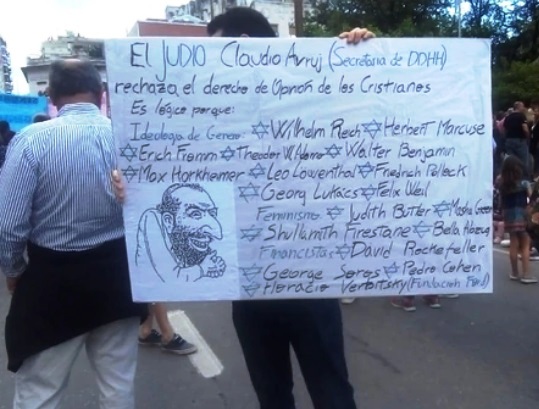 EL JUDIO Claudio Avruj (Secretaria de DDHH)
rechaza el derecho de Opinón de los Cristianos
Es lógico porque:
Ideologia de Genero: Wilhelm Reich Herbert Marcuse
Erich Fromm Theodor W. Adorno Walter Benjamin
Max Horkheimer Leo Lowenthal Friedrich Pollock
Georg Lukáics Felix Weil
Feminismo Judith Butler Masha
Shullamith Firestone Bella
Financistas David Rockefeller
George Soros Pedro Cohen
Horacio Verbitsky (Fundacion Ford)